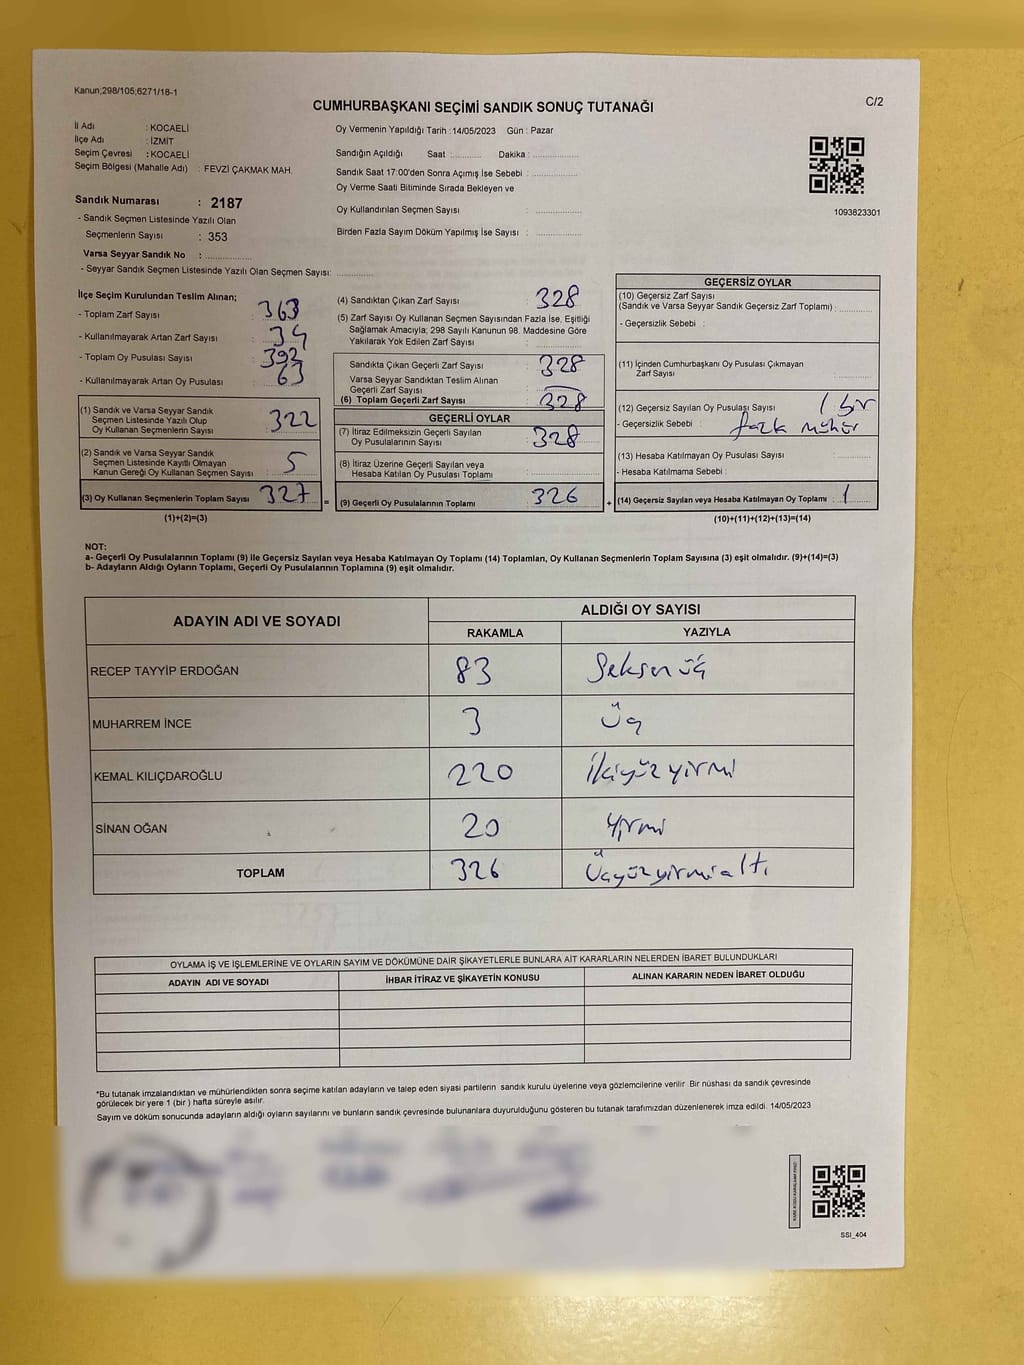 Kanun;298/105;6271/18-1
CUMHURBAŞKANI SEÇİMİ SANDIK SONUÇ TUTANAĞI
C/2
İl Adı : KOCAELİ
İlçe Adı : İZMİT
Seçim Çevresi : KOCAELİ
Seçim Bölgesi (Mahalle Adı) : FEVZİ ÇAKMAK MAH.
Sandık Numarası : 2187
- Sandık Seçmen Listesinde Yazılı Olan
Seçmenlerin Sayısı : 353
Varsa Seyyar Sandık No : ................
- Seyyar Sandık Seçmen Listesinde Yazılı Olan Seçmen Sayısı: ............
Oy Vermenin Yapıldığı Tarih : 14/05/2023 Gün : Pazar
Sandığın Açıldığı Saat :.......... Dakika : ...............
Sandık Saat 17:00'den Sonra Açımış İse Sebebi : ...............
Oy Verme Saati Bitiminde Sırada Bekleyen ve
Oy Kullandırılan Seçmen Sayısı : ...............
Birden Fazla Sayım Döküm Yapılmış İse Sayısı : ...............
1093823301
İlçe Seçim Kurulundan Teslim Alınan;
- Toplam Zarf Sayısı : 363
- Kullanılmayarak Artan Zarf Sayısı : 34
- Toplam Oy Pusulası Sayısı : 392
- Kullanılmayarak Artan Oy Pusulası : 63
(1) Sandık ve Varsa Seyyar Sandık
Seçmen Listesinde Yazılı Olup
Oy Kullanan Seçmenlerin Sayısı : 322
(2) Sandık ve Varsa Seyyar Sandık
Seçmen Listesinde Kayıtlı Olmayan
Kanun Gereği Oy Kullanan Seçmen Sayısı : 5
(3) Oy Kullanan Seçmenlerin Toplam Sayısı : 327 =
(1)+(2)=(3)
(4) Sandıktan Çıkan Zarf Sayısı : 328
(5) Zarf Sayısı Oy Kullanan Seçmen Sayısından Fazla İse, Eşitliği
Sağlamak Amacıyla; 298 Sayılı Kanunun 98. Maddesine Göre
Yakılarak Yok Edilen Zarf Sayısı : ...............
Sandıkta Çıkan Geçerli Zarf Sayısı : 328
Varsa Seyyar Sandıktan Teslim Alınan
Geçerli Zarf Sayısı
(6) Toplam Geçerli Zarf Sayısı : 328
GEÇERLİ OYLAR
(7) İtiraz Edilmeksizin Geçerli Sayılan
Oy Pusulalarının Sayısı : 328
(8) İtiraz Üzerine Geçerli Sayılan veya
Hesaba Katılan Oy Pusulası Toplamı : ...............
(9) Geçerli Oy Pusulalarının Toplamı : 326 +
GEÇERSİZ OYLAR
(10) Geçersiz Zarf Sayısı
(Sandık ve Varsa Seyyar Sandık Geçersiz Zarf Toplamı) : ..........
- Geçersizlik Sebebi :
(11) İçinden Cumhurbaşkanı Oy Pusulası Çıkmayan
Zarf Sayısı : ..........
(12) Geçersiz Sayılan Oy Pusulası Sayısı : 1 bir
- Geçersizlik Sebebi : fazla mühür
(13) Hesaba Katılmayan Oy Pusulası Sayısı : ..........
- Hesaba Katılmama Sebebi :
(14) Geçersiz Sayılan veya Hesaba Katılmayan Oy Toplamı : 1
(10)+(11)+(12)+(13)=(14)
NOT:
a- Geçerli Oy Pusulalarının Toplamı (9) ile Geçersiz Sayılan veya Hesaba Katılmayan Oy Toplamı (14) Toplamları, Oy Kullanan Seçmenlerin Toplam Sayısına (3) eşit olmalıdır. (9)+(14)=(3)
b- Adayların Aldığı Oyların Toplamı, Geçerli Oy Pusulalarının Toplamına (9) eşit olmalıdır.
ADAYIN ADI VE SOYADI
ALDIĞI OY SAYISI
RAKAMLA YAZIYLA
RECEP TAYYİP ERDOĞAN 83 Seksen üç
MUHARREM İNCE 3 Üç
KEMAL KILIÇDAROĞLU 220 İkiyüz yirmi
SİNAN OĞAN 20 Yirmi
TOPLAM 326 Üçyüzyirmialtı
OYLAMA İŞ VE İŞLEMLERİNE VE OYLARIN SAYIM VE DÖKÜMÜNE DAİR ŞİKAYETLERLE BUNLARA AİT KARARLARIN NELERDEN İBARET BULUNDUKLARI
ADAYIN ADI VE SOYADI İHBAR İTİRAZ VE ŞİKAYETİN KONUSU ALINAN KARARIN NEDEN İBARET OLDUĞU
*Bu tutanak imzalandıktan ve mühürlendikten sonra seçime katılan adayların ve talep eden siyasi partilerin sandık kurulu üyelerine veya gözlemcilerine verilir. Bir nüshası da sandık çevresinde
görülecek bir yere 1 (bir ) hafta süreyle asılır.
Sayım ve döküm sonucunda adayların aldığı oyların sayılarını ve bunların sandık çevresinde bulunanlara duyurulduğunu gösteren bu tutanak tarafımızdan düzenlenerek imza edildi. 14/05/2023
SSI_404